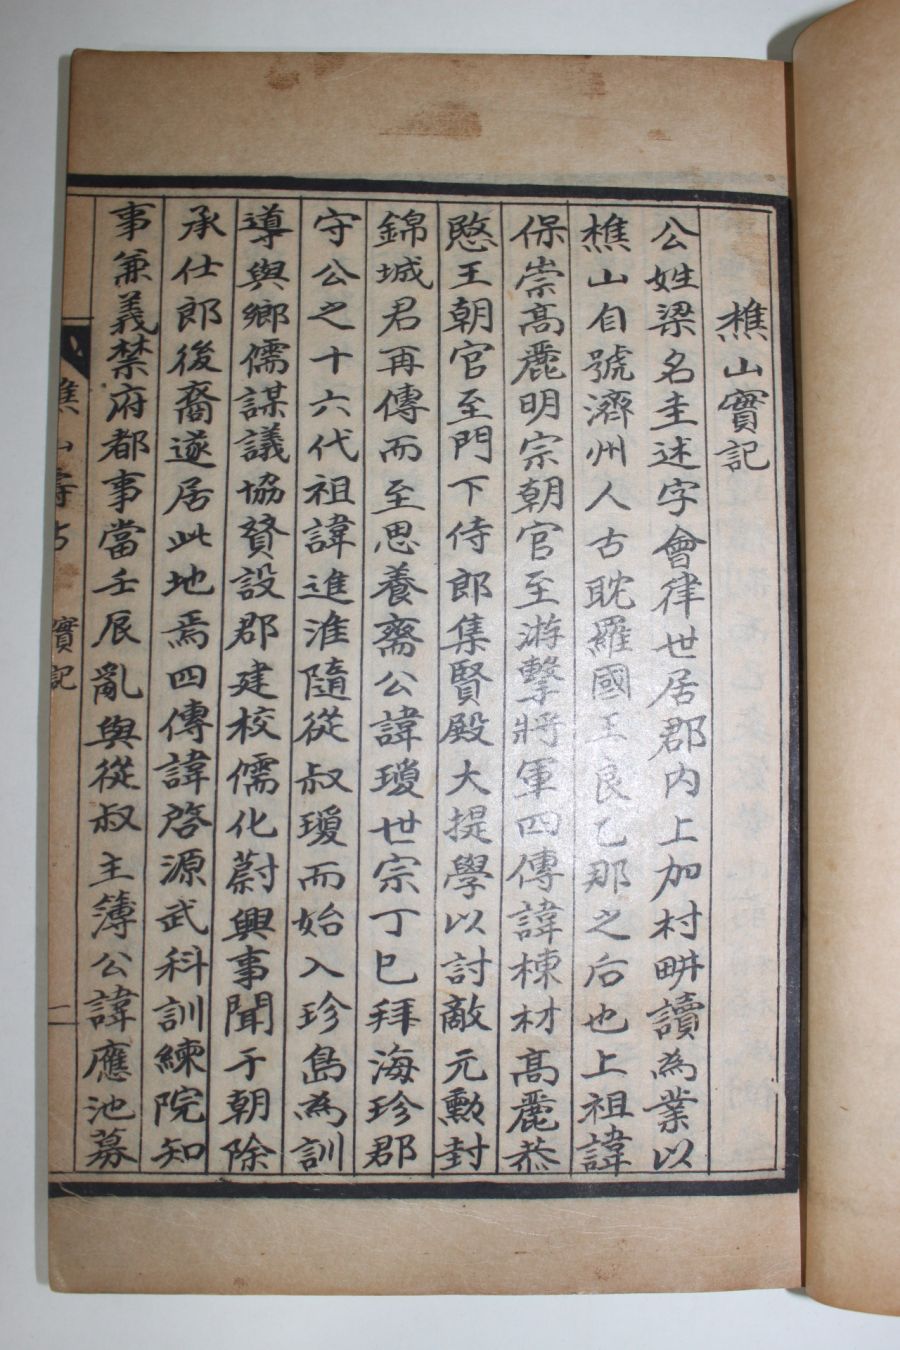 樵山實記
公姓梁名圭述字會律世居郡內上加村畊讀為業以
樵山自號濟州人古耽羅國王良乙那之后也上祖諱
保崇高麗明宗朝官至游擊將軍四傳諱棟材高麗恭
愍王朝官至門下侍郎集賢殿大提學以討敵元勳封
錦城君再傳而至思養齋公諱瓊世宗丁巳拜海珍郡
守公之十六代祖諱進淮隨從叔瓊而始入珍島為訓
導與鄉儒謀議協贊設郡建校儒化蔚興事聞于朝除
承仕郎後裔遂居此地焉四傳諱啓源武科訓練院知
事兼義禁府都事當壬辰亂與從叔主簿公諱應池募
樵山壽古 實記 一